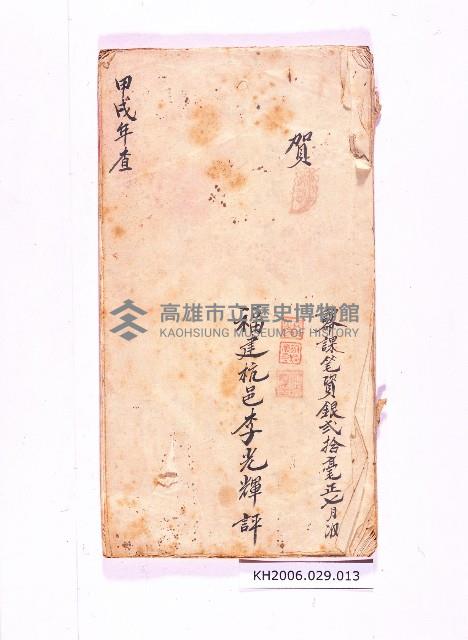 賀
課笔資銀弍拾毫正七月
福建杭邑李光輝評
甲戌年查
高雄市立歷史博物館
KAOHSIUNG MUSEUM OF HISTORY
KH2006.029.013